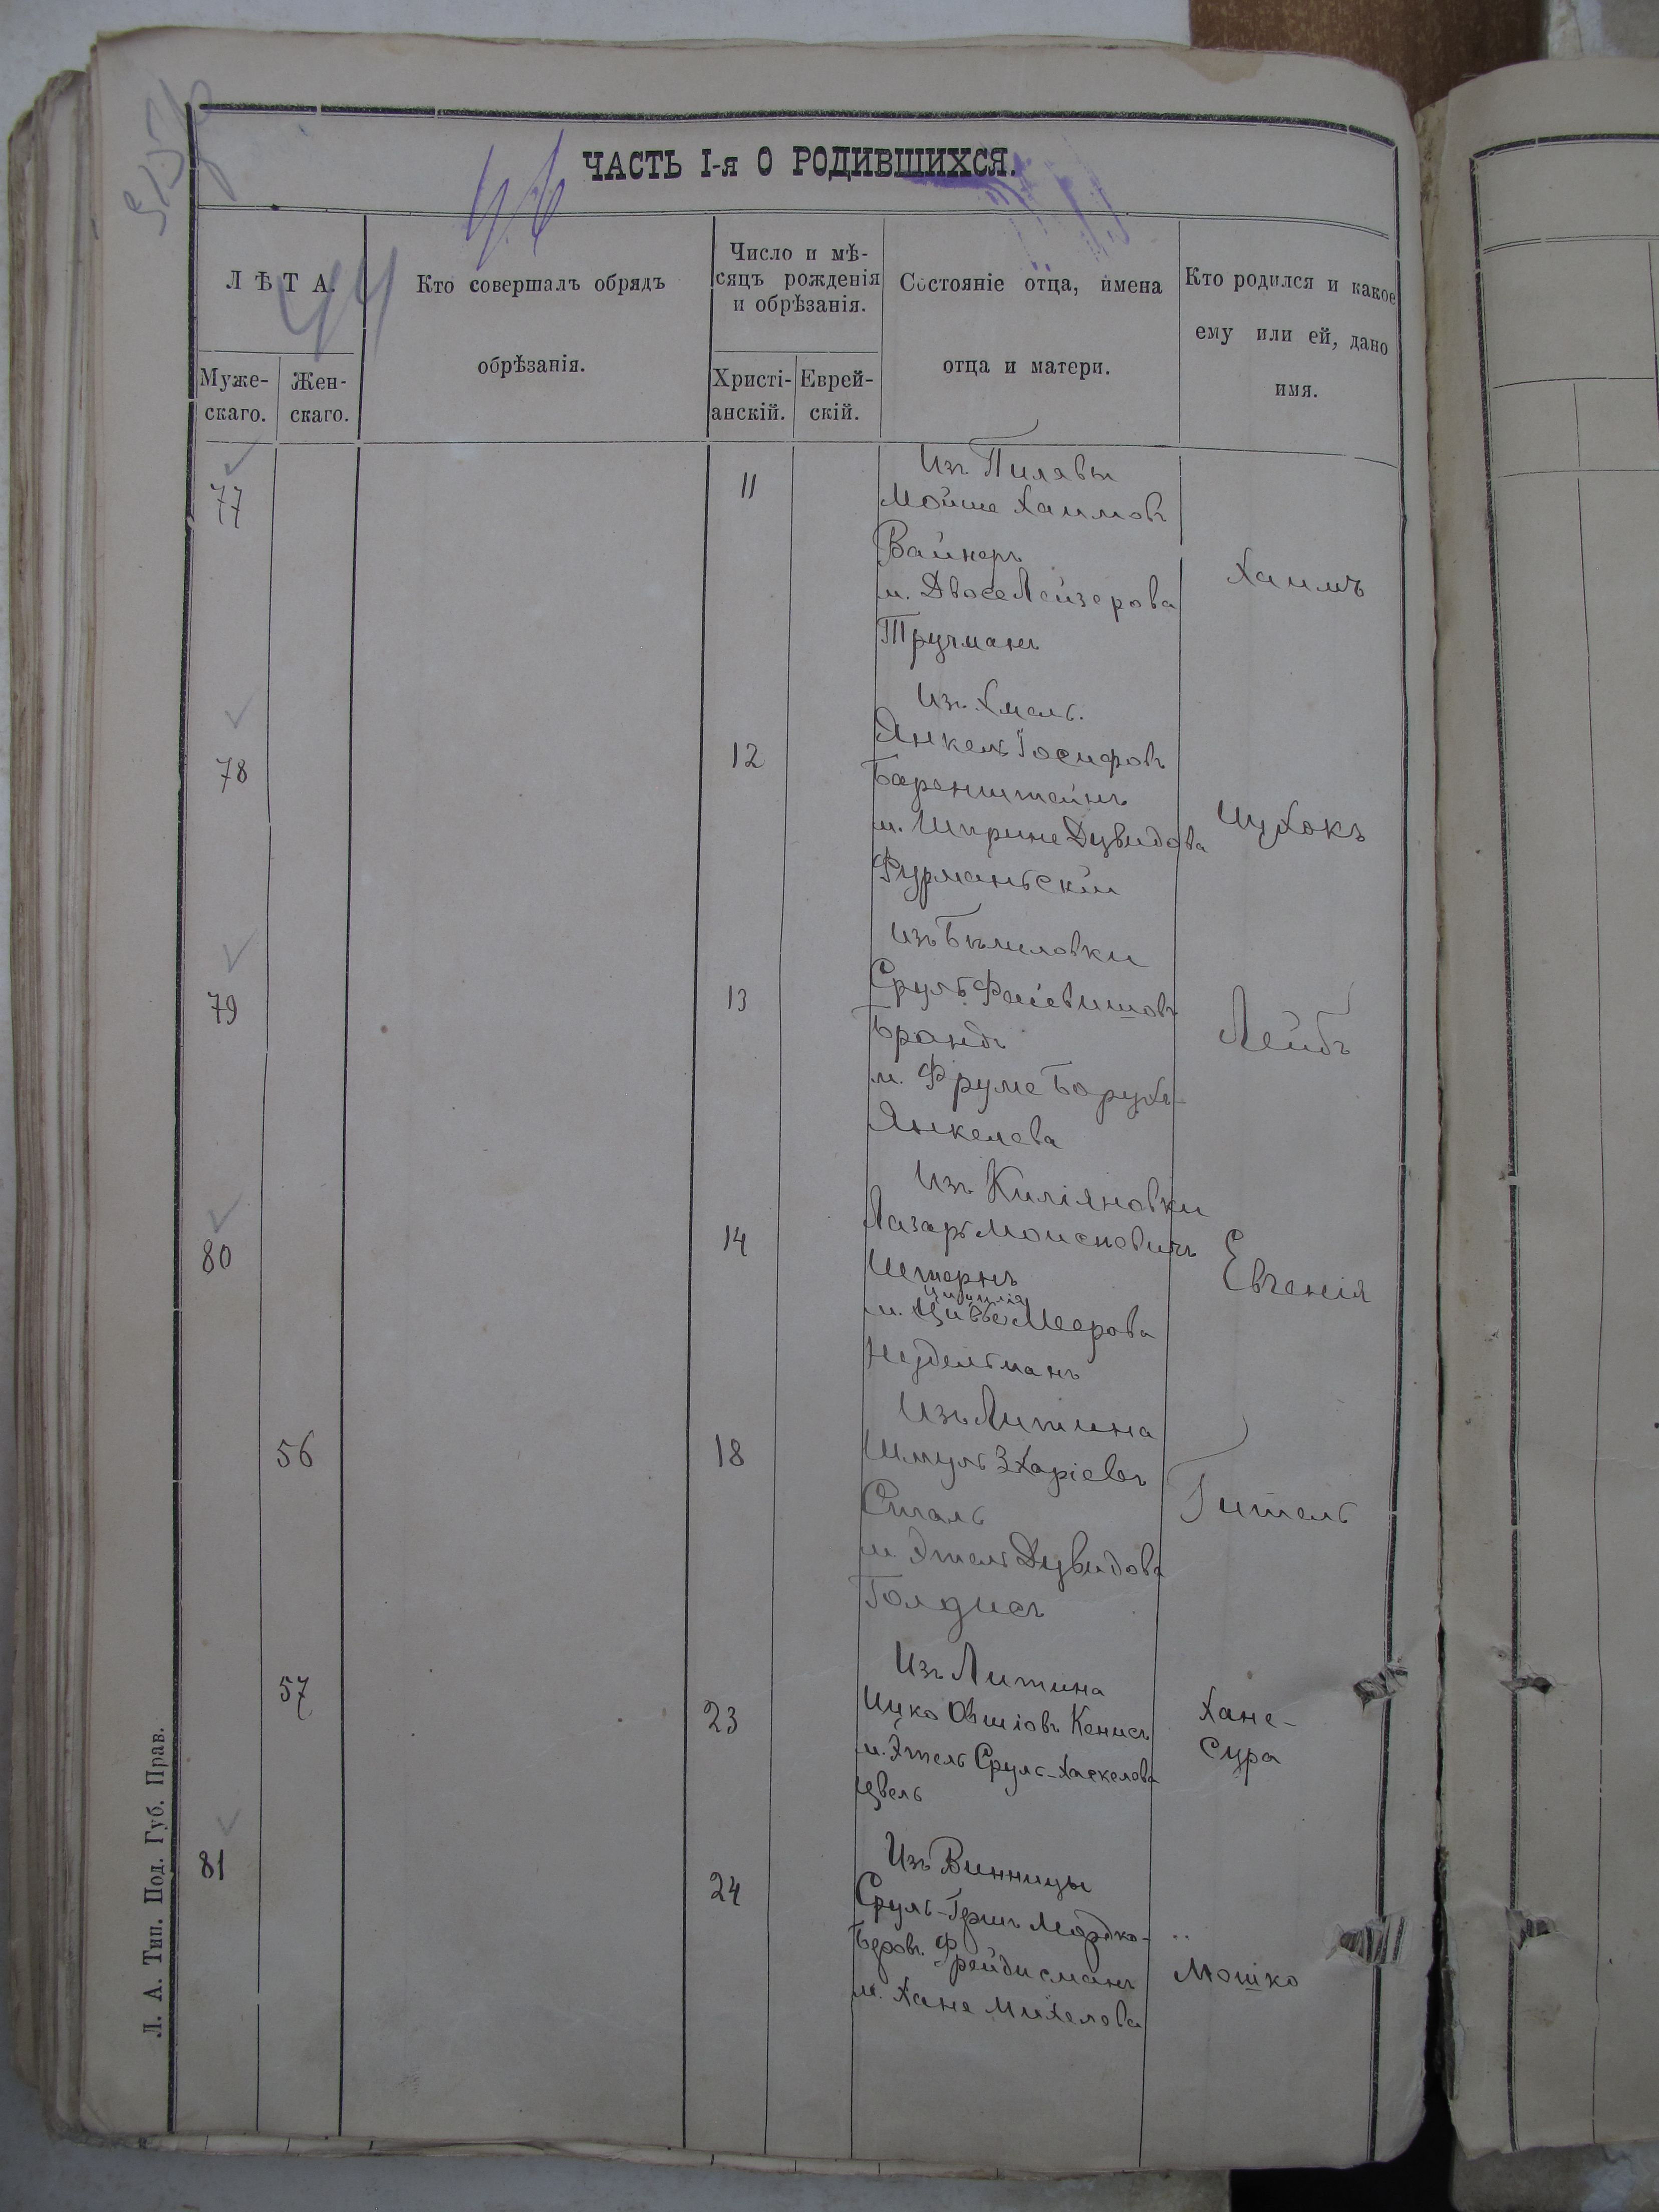 ЧАСТЬ I-я О РОДИВШИХСЯ.
44
ЛѢТА.
Муже-
скаго.
Жен-
скаго.
Кто совершалъ обрядъ
обрѣзанія.
Число и мѣ-
сяцъ рожденія
и обрѣзанія.
Христі-
анскій.
Еврей-
скій.
Состояніе отца, имена
отца и матери.
Кто родился и какое
ему или ей, дано
имя.
77
11
Изъ Пилявы
Мойше Хаимовъ
Вайнеръ
м. Двосе Лейзерова
Тручманъ
Хаимъ
78
12
Изъ Хмель.
Янкель Іосифовъ
Беренштейнъ
м. Шприне Дувидова
Фурманьскій
Ицхокъ
79
13
Изъ
Сруль Файвишовъ
Брандъ
м. Фруме Борухъ-
Янкелева
Лейбъ
80
14
Изъ Киліяновки
Лазарь Моисеевичъ
Штернъ
Цицилія
м. Мееровa
Нудельманъ
Евгенія
56
18
Изъ Литина
Шмуль Зхаріевъ
Сталь
м. Этель Дувидова
Голдисъ
Гитель
57
23
Изъ Литина
Ицко Овшіовъ Кенисъ
м. Этель Сруль-Хаскелова
Цвель
Хане-
Сура
81
24
Изъ Винницы
Сруль-Гершъ Мордко-
Беровъ Фрейдисманъ
м. Хане Михелова
Мошко
Л. А. Тип. Под. Губ. Прав.